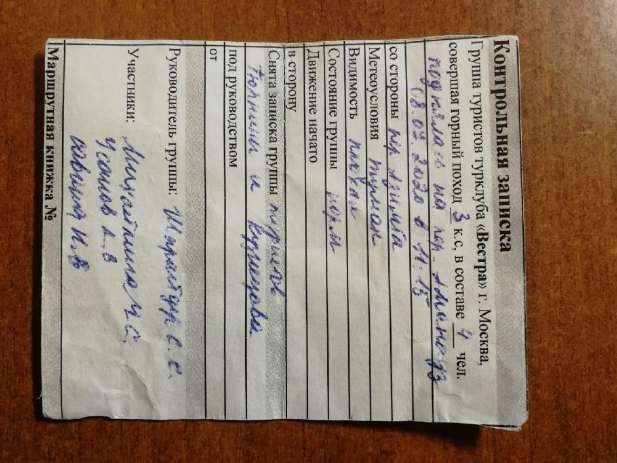 Контрольная записка
Группа туристов турклуба «Вестра» г. Москва,
совершая горный поход 3 к.с, в составе 4 чел.
поднялась на пер.
08.2020 в 11:15
со стороны пер.
Метеоусловия туман
Видимость плохая
Состояние группы норм
Движение начато
в сторону
Снята записка группы туристов
и Кузнецова
под руководством
от
Руководитель группы: С.С.
Участники:
Усанов А.В
Маршрутная книжка №